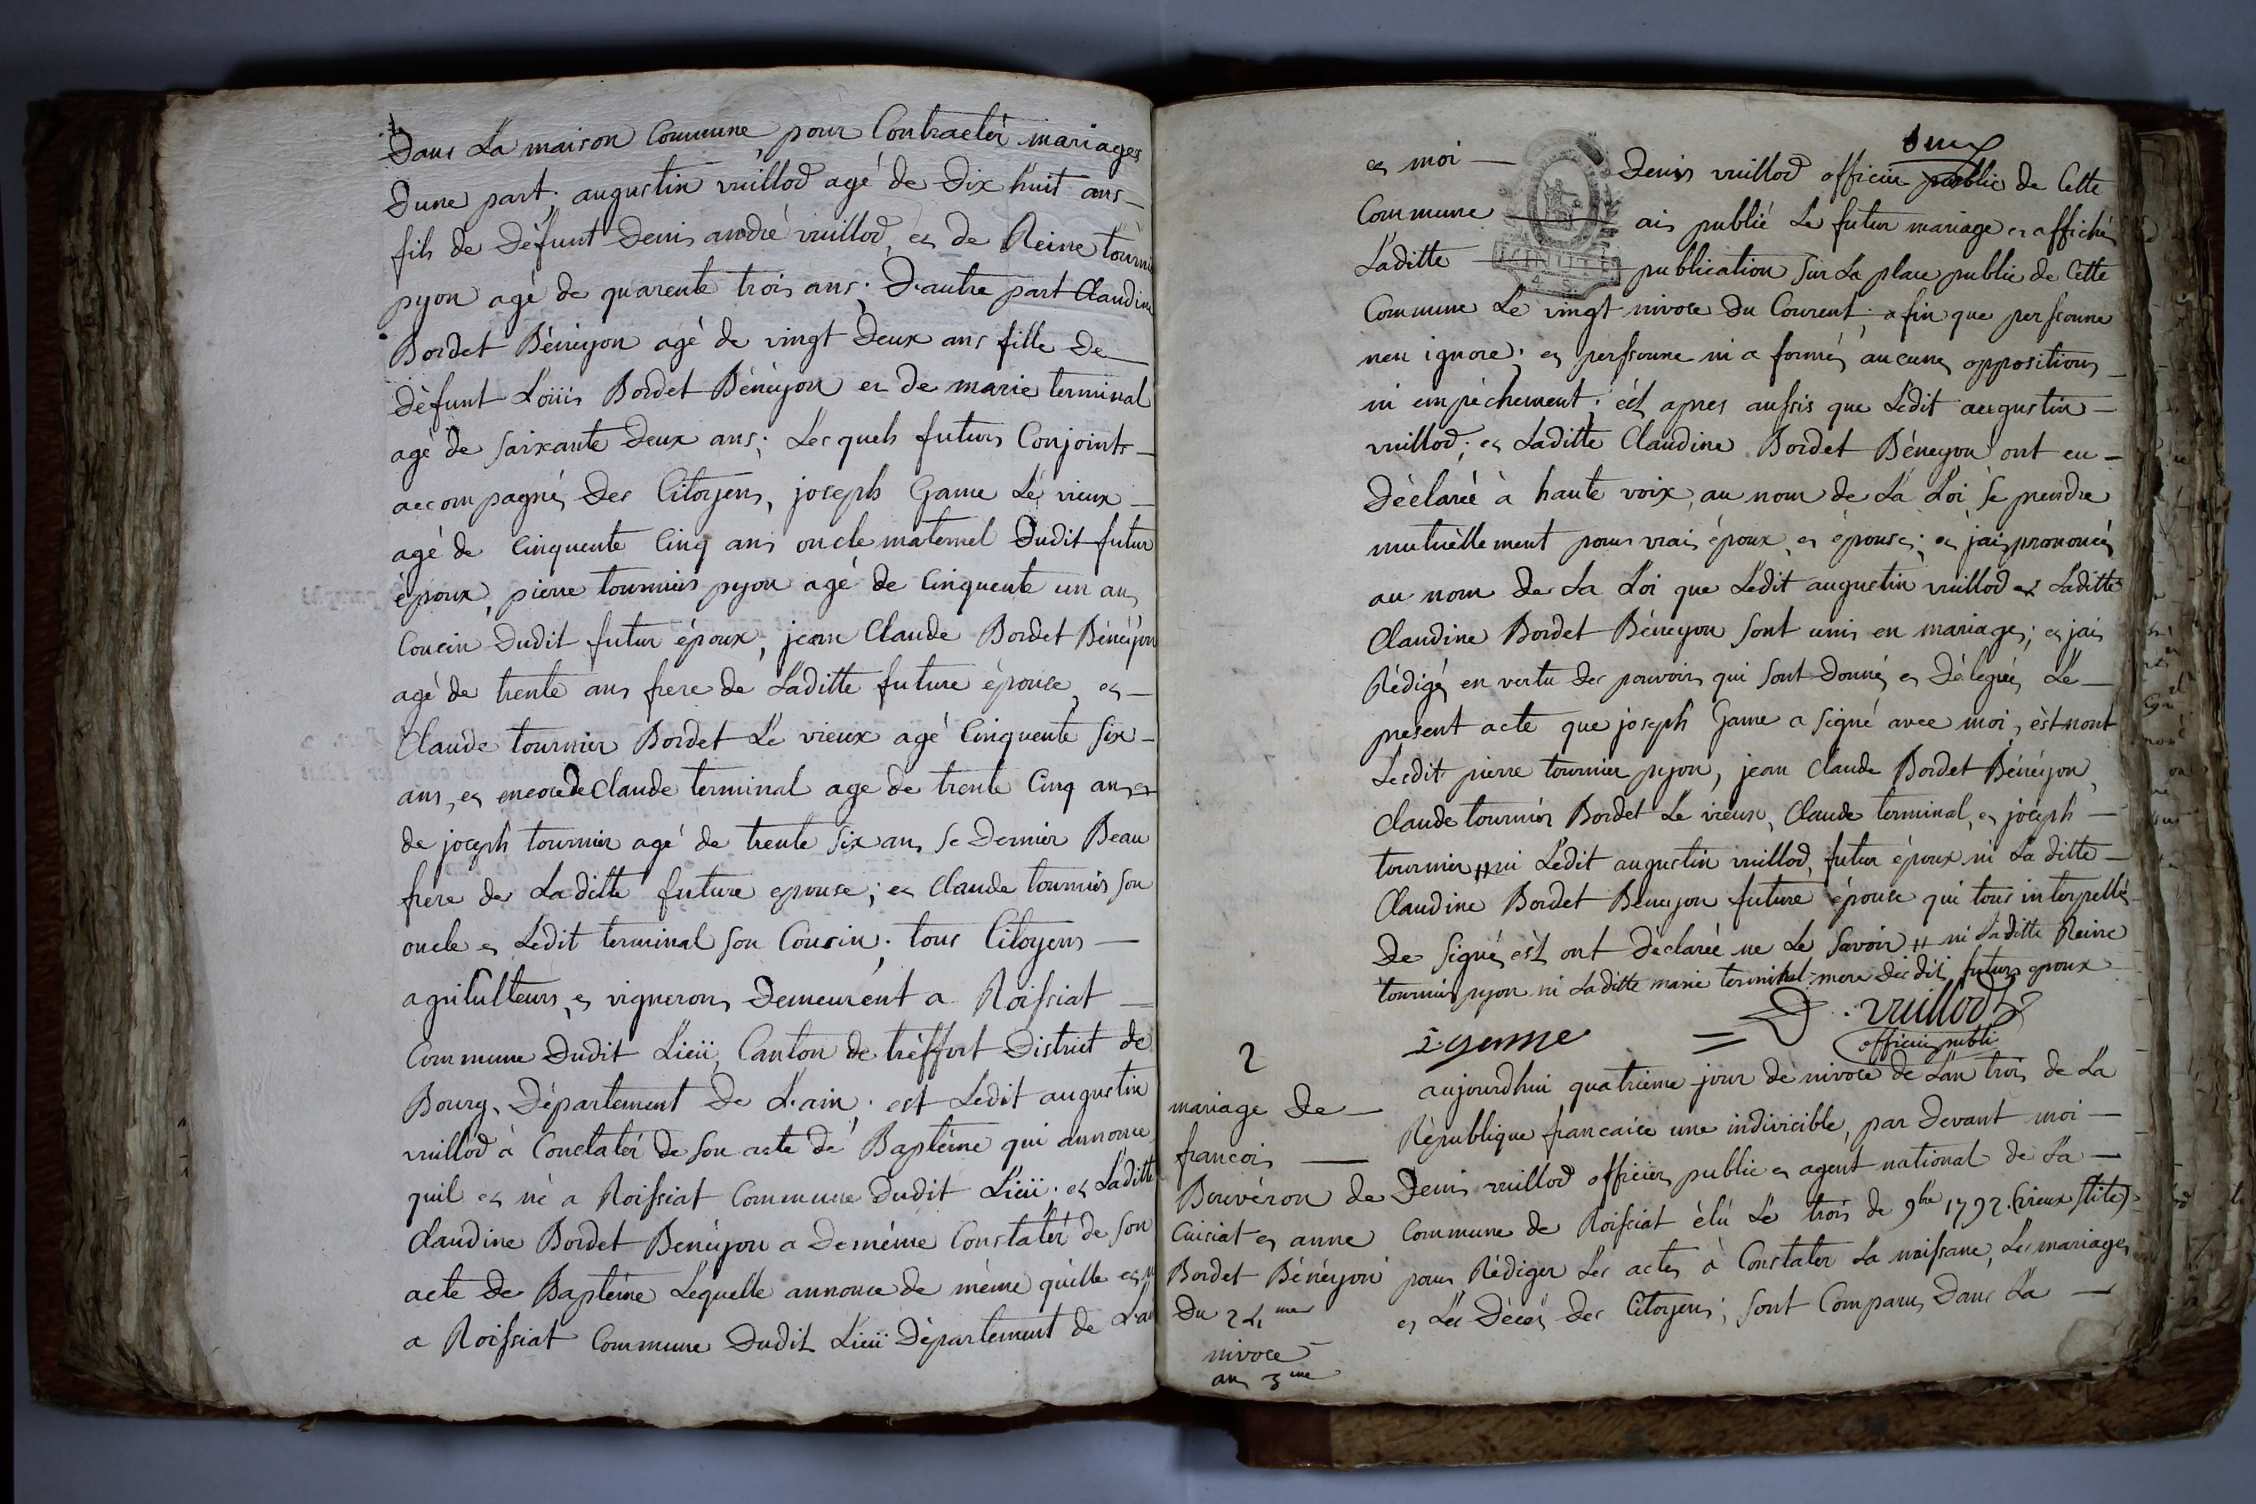 Dans La maison Commune, pour Contracter mariages
Dune part, augustin vuillod agé de Dix huit ans
fils de Défunt Denis andré vuillod, es de Reine tourni
pyon agé de quarente trois ans; D'autre part Claudine
Bordet Bénéyon agé de vingt Deux ans fille De
Défunt Loüis Bordet Bénéyon es de marie terminal
agé de Soixante Deux ans; Lesquels futurs Conjoints
accompagnés Des Citoyens, joseph Game Lé vieux
agé de Cinquente Cinq ans oncle maternel Dudit futur
époux, pierre tournier pyon agé de Cinquente un ans
Cousin Dudit futur époux, jean Claude Bordet Bénéyon
agé de trente ans frere de Laditte future épouse, es
Claude tournier Bordet Lé vieux agé Cinquente Six
ans, es encore de Claude terminal age de trente Cinq ans es
de joseph tournier agé de trente Six ans Se Dernier Beau
frere de Laditte future epouse; es Claude tournier Son
oncle es Ledit terminal Son Cousin; tous Citoyens
agriculteurs es vignerons Demeurént a Roissiat
Commune Dudit Lieü, Canton de tréffort District de
Bourg, Département De L'ain. est Ledit augustin
vuillod à Constatér de Son acte de Baptéme qui annonce
quil es né a Roissiat Commune Dudit Lieü. es Laditte
Claudine Bordet Benéyon a Deméme Constatér de Son
acte De Baptéme Lequelle annonce de méme quélle es n
a Roissiat Commune Dudit Lieü Département de L'ai
Deux
es moi Denis vuillod officier public de Cette
Commune ais publié Le futur mariage es affichés
Laditte publication Sur La place public de Cette
MINUTE
4. S.
Commune Le vingt nivose Du Courent; afin que perssonne
nen ignore; es perssonne ni a formés aucunes oppositions
ni empéchement; ést apres aussis que Ledit augustin
vuillod; es Laditte Claudine Bordet Béneyon ont eu
Déclareé à haute voix, au nom de La Loi Se prendre
mutuéllement pour vrais époux es épouse; es jais prononcés
au nom de La Loi que Ledit augustin vuillod es Laditte
Claudine Bordet Béneyon Sont unis en mariages; es jais
Rédigés en vertu des pouvoirs qui Sont Donnés es Délegués Le
present acte que joseph Game a Signé avec moi, ést nont
Lesdit pierre tournier pyon, jean Claude Bordet Bénéyon,
Claude tournier Bordet Le vieux, Claude terminal, es joseph
tournier ## ni Ledit augustin vuillod, futur époux ni La ditte
Claudine Bordet Beneyon future épouse qui tous interpellés
De Signé ést ont Déclareé ne Le Savoir ## ni Laditte Reine
tournier pyon ni Laditte marie terminal mere Desdit futurs epoux
J. game = D. vuillod
officier public
2
mariage De
francois
Bouvéron de
Cuisiat es anne
Bordet Bénéyon
Du 4me
nivose
an 3me
aujourdhui quatrieme jour de nivose de Lan trois de La
République francaise une indivicible, par Devant moi
Denis vuillod officier public es agent national de La
Commune de Roissiat élü Lé trois de 9bre 1792. (vieux Stile)
pour Rédiger Les actes à Constater La naissance, Les mariages
es Les Décés des Citoyens; Sont Comparus Dans La